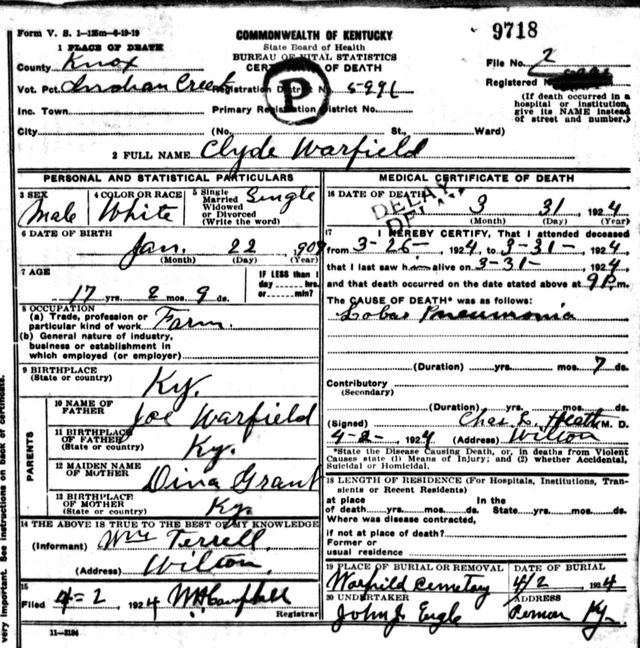 Form V. S. 1—125m—6-19-19
COMMONWEALTH OF KENTUCKY
State Board of Health
BUREAU OF VITAL STATISTICS
CERTIFICATE OF DEATH
9718
1 PLACE OF DEATH
County Knox
File No. 2
Vot. Pct. Indian Creek Registration District No. 5991
Registered No.
(If death occurred in a hospital or institution, give its NAME instead of street and number.)
P
Inc. Town Primary Registration District No.
City (No. St., Ward)
2 FULL NAME Clyde Warfield
PERSONAL AND STATISTICAL PARTICULARS
3 SEX
Male
4 COLOR OR RACE
White
5 Single
Married
Widowed
or Divorced
(Write the word)
Single
6 DATE OF BIRTH
Jan. 22
(Month) (Day) (Year)
7 AGE
17 yrs. 2 mos. 9 ds.
IF LESS than
1 day hrs.
or min?
8 OCCUPATION
(a) Trade, profession or
particular kind of work Farm.
(b) General nature of industry,
business or establishment in
which employed (or employer)
9 BIRTHPLACE
(State or country) Ky.
PARENTS
10 NAME OF
FATHER Joe Warfield
11 BIRTHPLACE
OF FATHER
(State or country) Ky.
12 MAIDEN NAME
OF MOTHER Dina Grant
13 BIRTHPLACE
OF MOTHER
(State or country) Ky
14 THE ABOVE IS TRUE TO THE BEST OF MY KNOWLEDGE
(Informant) Wm Terrell
(Address) Wilton
15
Filed 4-2, 1924 W H Campbell
Registrar
11—3184
MEDICAL CERTIFICATE OF DEATH
16 DATE OF DEATH
3 31 1924
(Month) (Day) (Year)
DELAY
17 I HEREBY CERTIFY, That I attended deceased
from 3-25-, 1924, to 3-31-, 1924,
that I last saw him alive on 3-31-, 1924,
and that death occurred on the date stated above at 9 P.m.
The CAUSE OF DEATH* was as follows:
Lobar Pneumonia
(Duration) yrs. mos. 7 ds.
Contributory
(Secondary)
(Duration) yrs. mos. ds.
(Signed) Chas L. Heath M. D.
4-2-, 1924 (Address) Wilton
*State the Disease Causing Death, or, in deaths from Violent
Causes state (1) Means of Injury; and (2) whether Accidental,
Suicidal or Homicidal.
18 LENGTH OF RESIDENCE (For Hospitals, Institutions, Transients or Recent Residents)
At place In the
of death yrs. mos. ds. State yrs. mos. ds.
Where was disease contracted,
if not at place of death?
Former or
usual residence
19 PLACE OF BURIAL OR REMOVAL
Warfild Cemetary
DATE OF BURIAL
4/2, 1924
20 UNDERTAKER
John J. Engle
ADDRESS
Ky.
very important. See instructions on back of certificate.